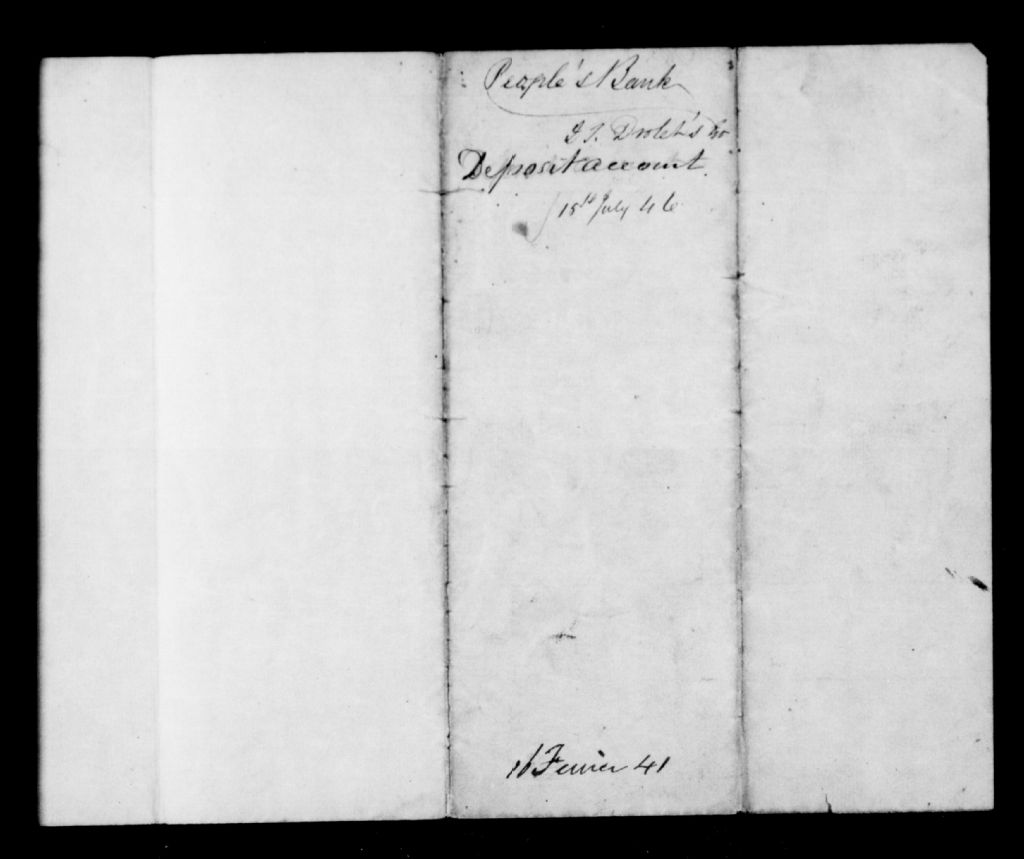 People's Bank
J. T. Drolet's
Deposit account
15th July 46
16 Fevrier 41